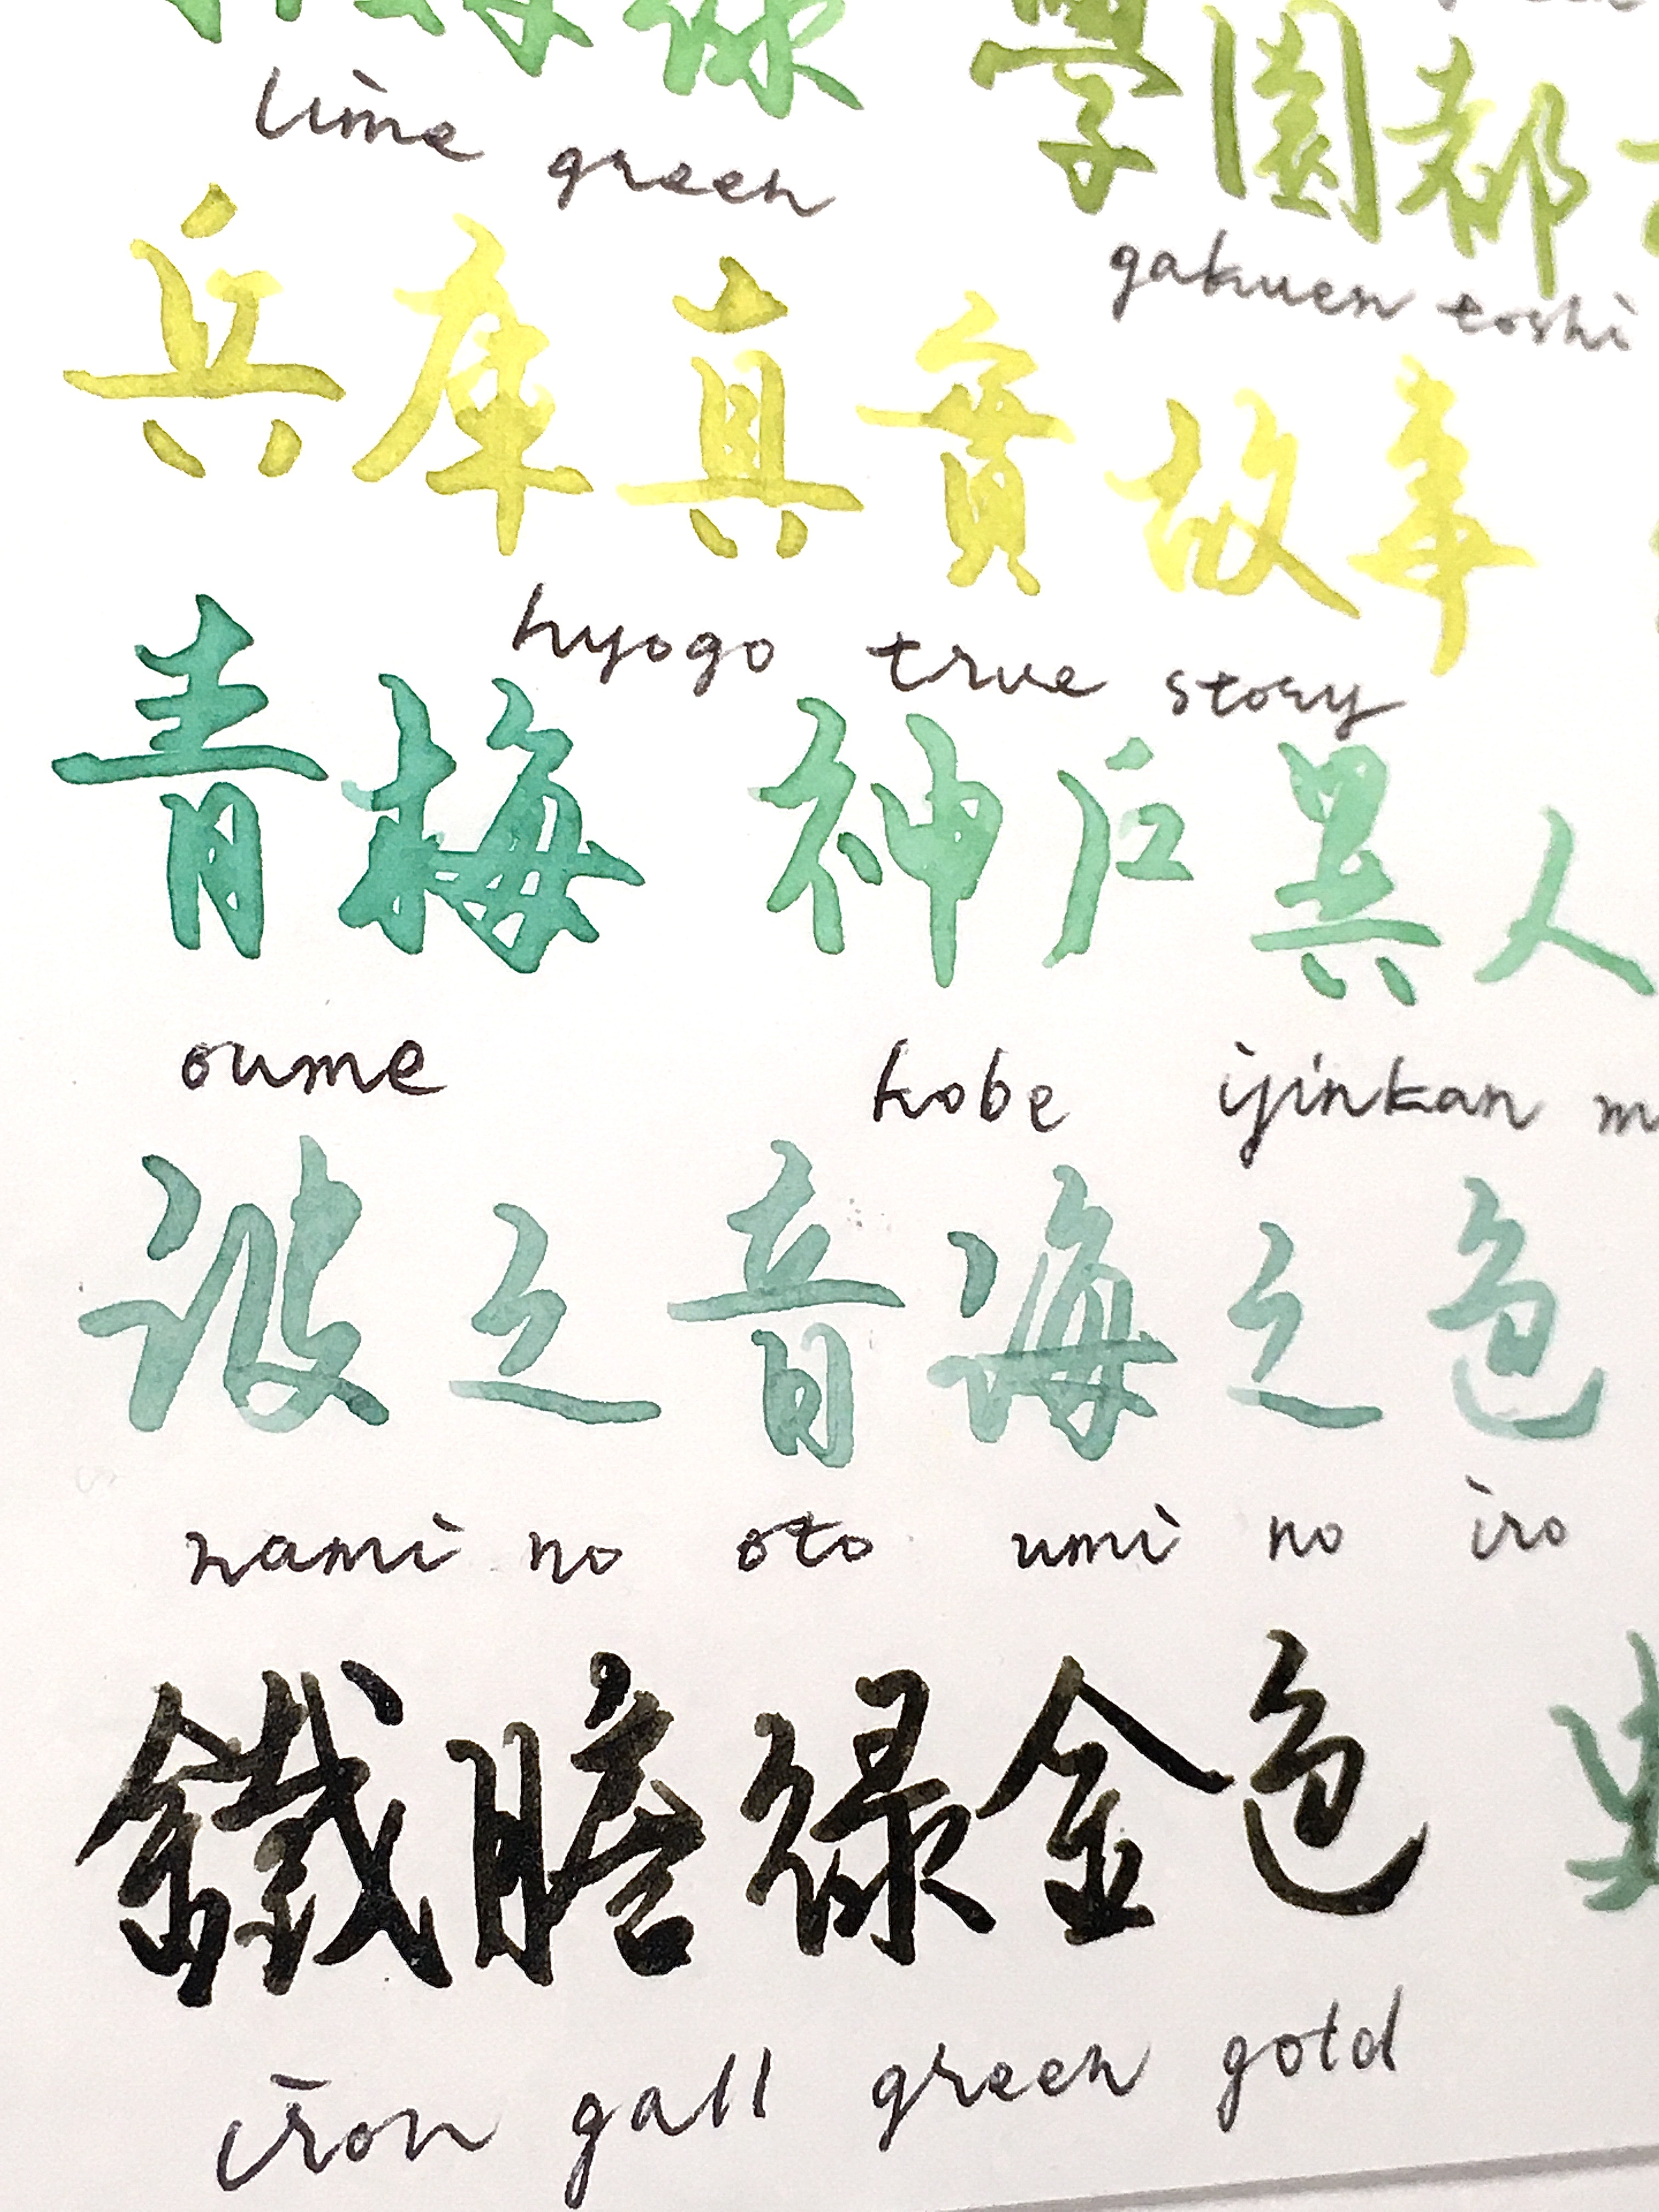 綠 學園都
lime green
gakuen toshi
兵庫真實故事
hyogo true story
青梅 神戶異人
oume kobe ijinkan
波之音海之色
nami no oto umi no iro
鐵膽綠金色
iron gall green gold